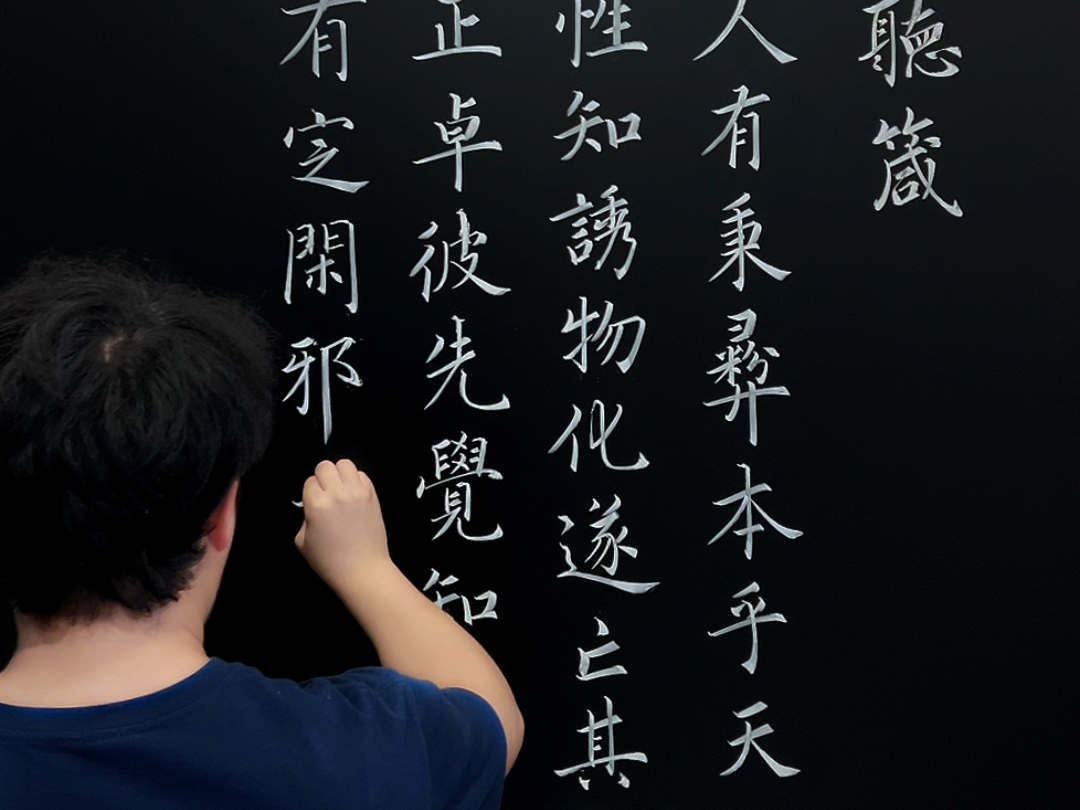 聽箴
人有秉彝本乎天
性知誘物化遂亡其
正卓彼先覺知
有定閑邪